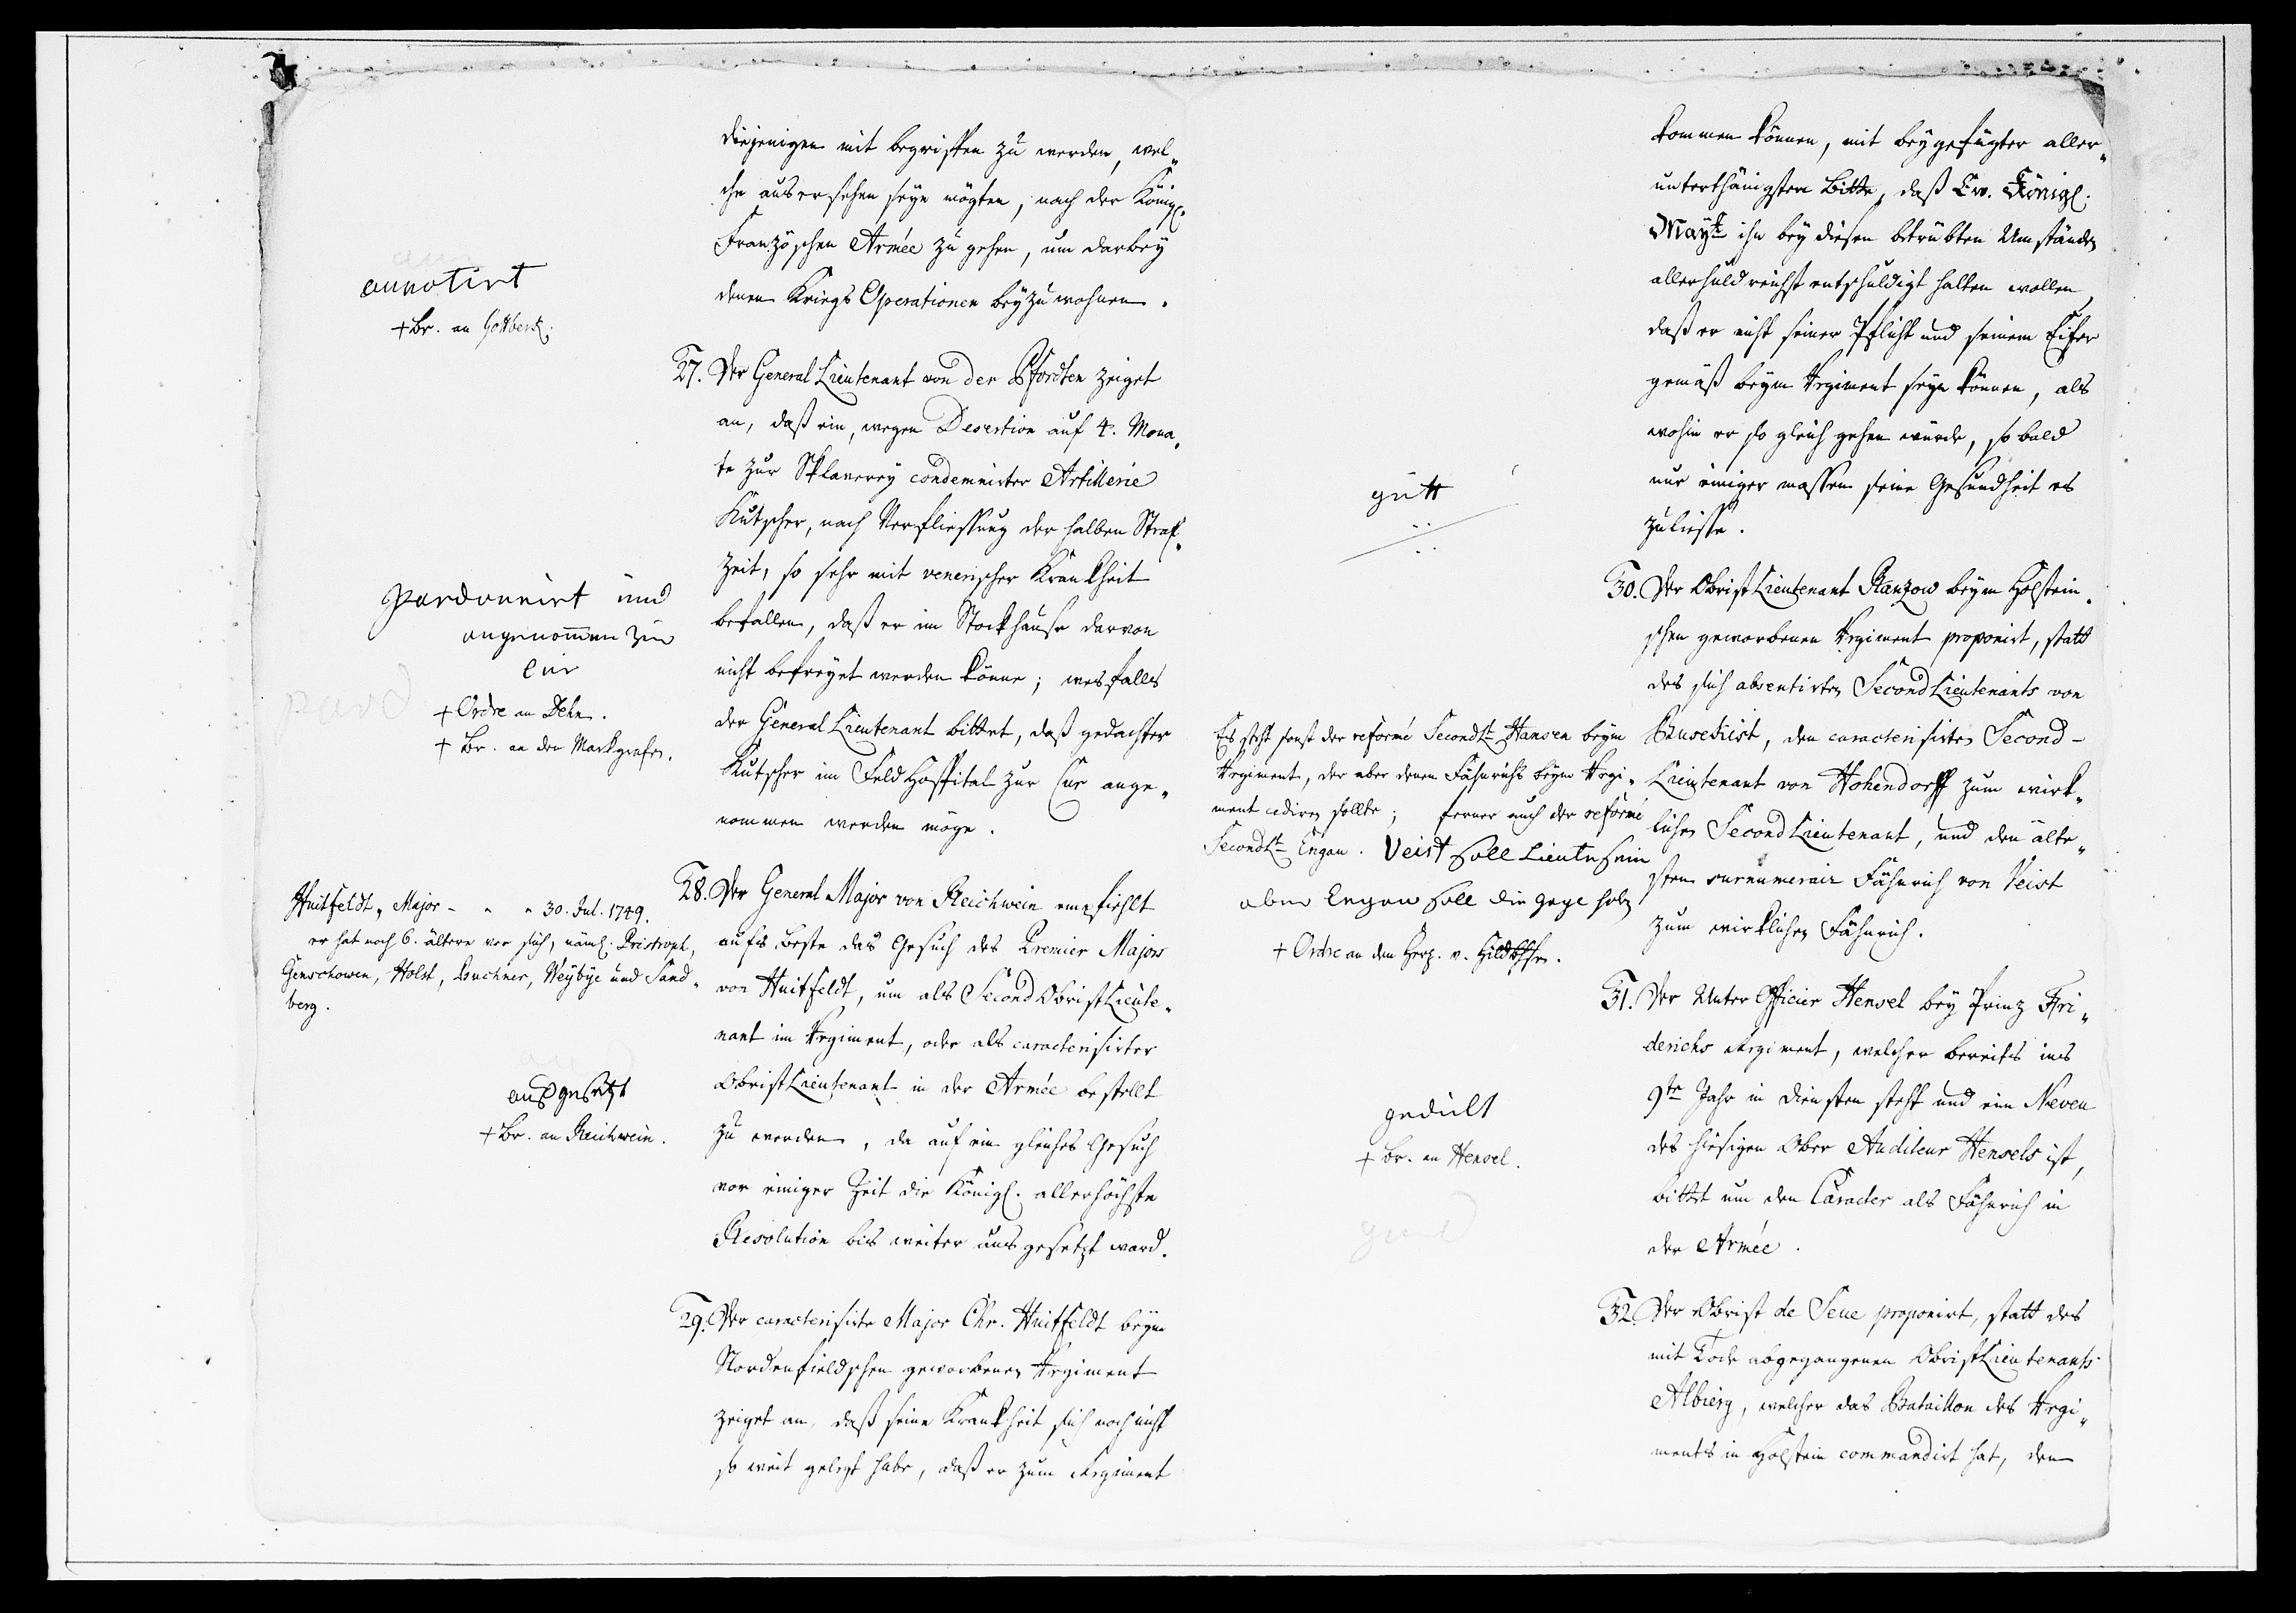 diejenigen mit begriffen zu werden, wel„
che ausersehen seyn mögten, nach der Königl.
Französchen Armée zu gehen, um darbey
denen Kriegs Operationen beyzuwohnen.
annotirt
+ Br. an Gottberk.
27. Der General Lieutenant von der Pfordten zeiget
an, daß ein, wegen Desertion auf 4. Mona„
te zur Sklaverey condemnirter Artillerie
Kutscher, nach Verfliessung der halben Straf„
zeit, so sehr mit venerischer Krankheit
befallen, daß er im Stockhause darvon
nicht befreyet werden könne; wesfalls
der General Lieutenant bittet, daß gedachter
Kutscher im Feld Hospital zur Cur ange„
nommen werden möge.
pardonnirt und
angenommen zur
Cur
+ Ordre an Dehn.
+ Br. an den Markgrafen.
28. Der General Major von Reichwein empfiehlt
aufs beste das Gesuch des Premier Major
von Huitfeldt, um als Second Obrist Lieute„
nant im Regiment, oder als caracterisirter
Obrist Lieutenant in der Armée bestellt
zu werden, da auf ein gleiches Gesuch
vor einiger Zeit die Königl. allerhöchste
Resolution bis weiter ausgesetzt ward.
Huitfeldt, Major - " " 30. Jul. 1749.
er hat noch 6. ältere vor sich, näml. Pristroph,
Genschowen, Holst, Buchner, Weybye und Sand„
berg.
ausgesetzt
+ Br. an Reichwein.
29. Der caracterisirte Major Chr. Huitfeldt beym
Nordenfieldschen geworbenen Regiment
zeiget an, daß seine Krankheit sich noch nicht
so weit gelegt habe, daß er zum Regiment
kommen können, mit beygefügter aller„
unterthänigster Bitte, daß Ew. Königl.
Mayt. ihn bey diesen betrübten Umständen
allerhuldreichst entschuldigt halten wollen,
daß er nicht seiner Pflicht und seinem Eifer
gemäß beym Regiment seyn können, als
wohin er so gleich gehen würde, so bald
nur einiger massen seine Gesundheit es
zuliesse.
gutt
30. Der Obrist Lieutenant Ranzow beym Holstein„
schen geworbenen Regiment proponirt, statt
des sich absentirten Second Lieutenants von
Buseckist, den caracterisirten Second-
Lieutenant von Hohendorff zum wirk„
lichen Second Lieutenant, und den älte„
sten surnumerair Fähnrich von Veist
zum wirklichen Fähnrich.
Es steht sonst der reformé Secondlt. Hansen beym
Regiment, der aber denen Fähnrichs beym Regi„
ment cediren sollte; ferner auch der reformé
Secondlt. Engau. Veist soll Lieutn sein
aber Engau soll die gage haben
+ Ordre an den Herz. v. Hildbhsn.
31. Der Unter Officier Hensel bey Prinz Fri„
derichs Regiment, welcher bereits ins
9te Jahr in Diensten steht und ein Neveu
des hiesigen Ober Auditeur Hensels ist,
bittet um den Caracter als Fähnrich in
der Armée.
gedult
+ Br. an Hensel.
32. Der Obrist de Seue proponirt, statt des
mit Tode abgegangenen Obrist Lieutenants
Albierg, welcher das Bataillon des Regi„
ments in Holstein commandirt hat, den